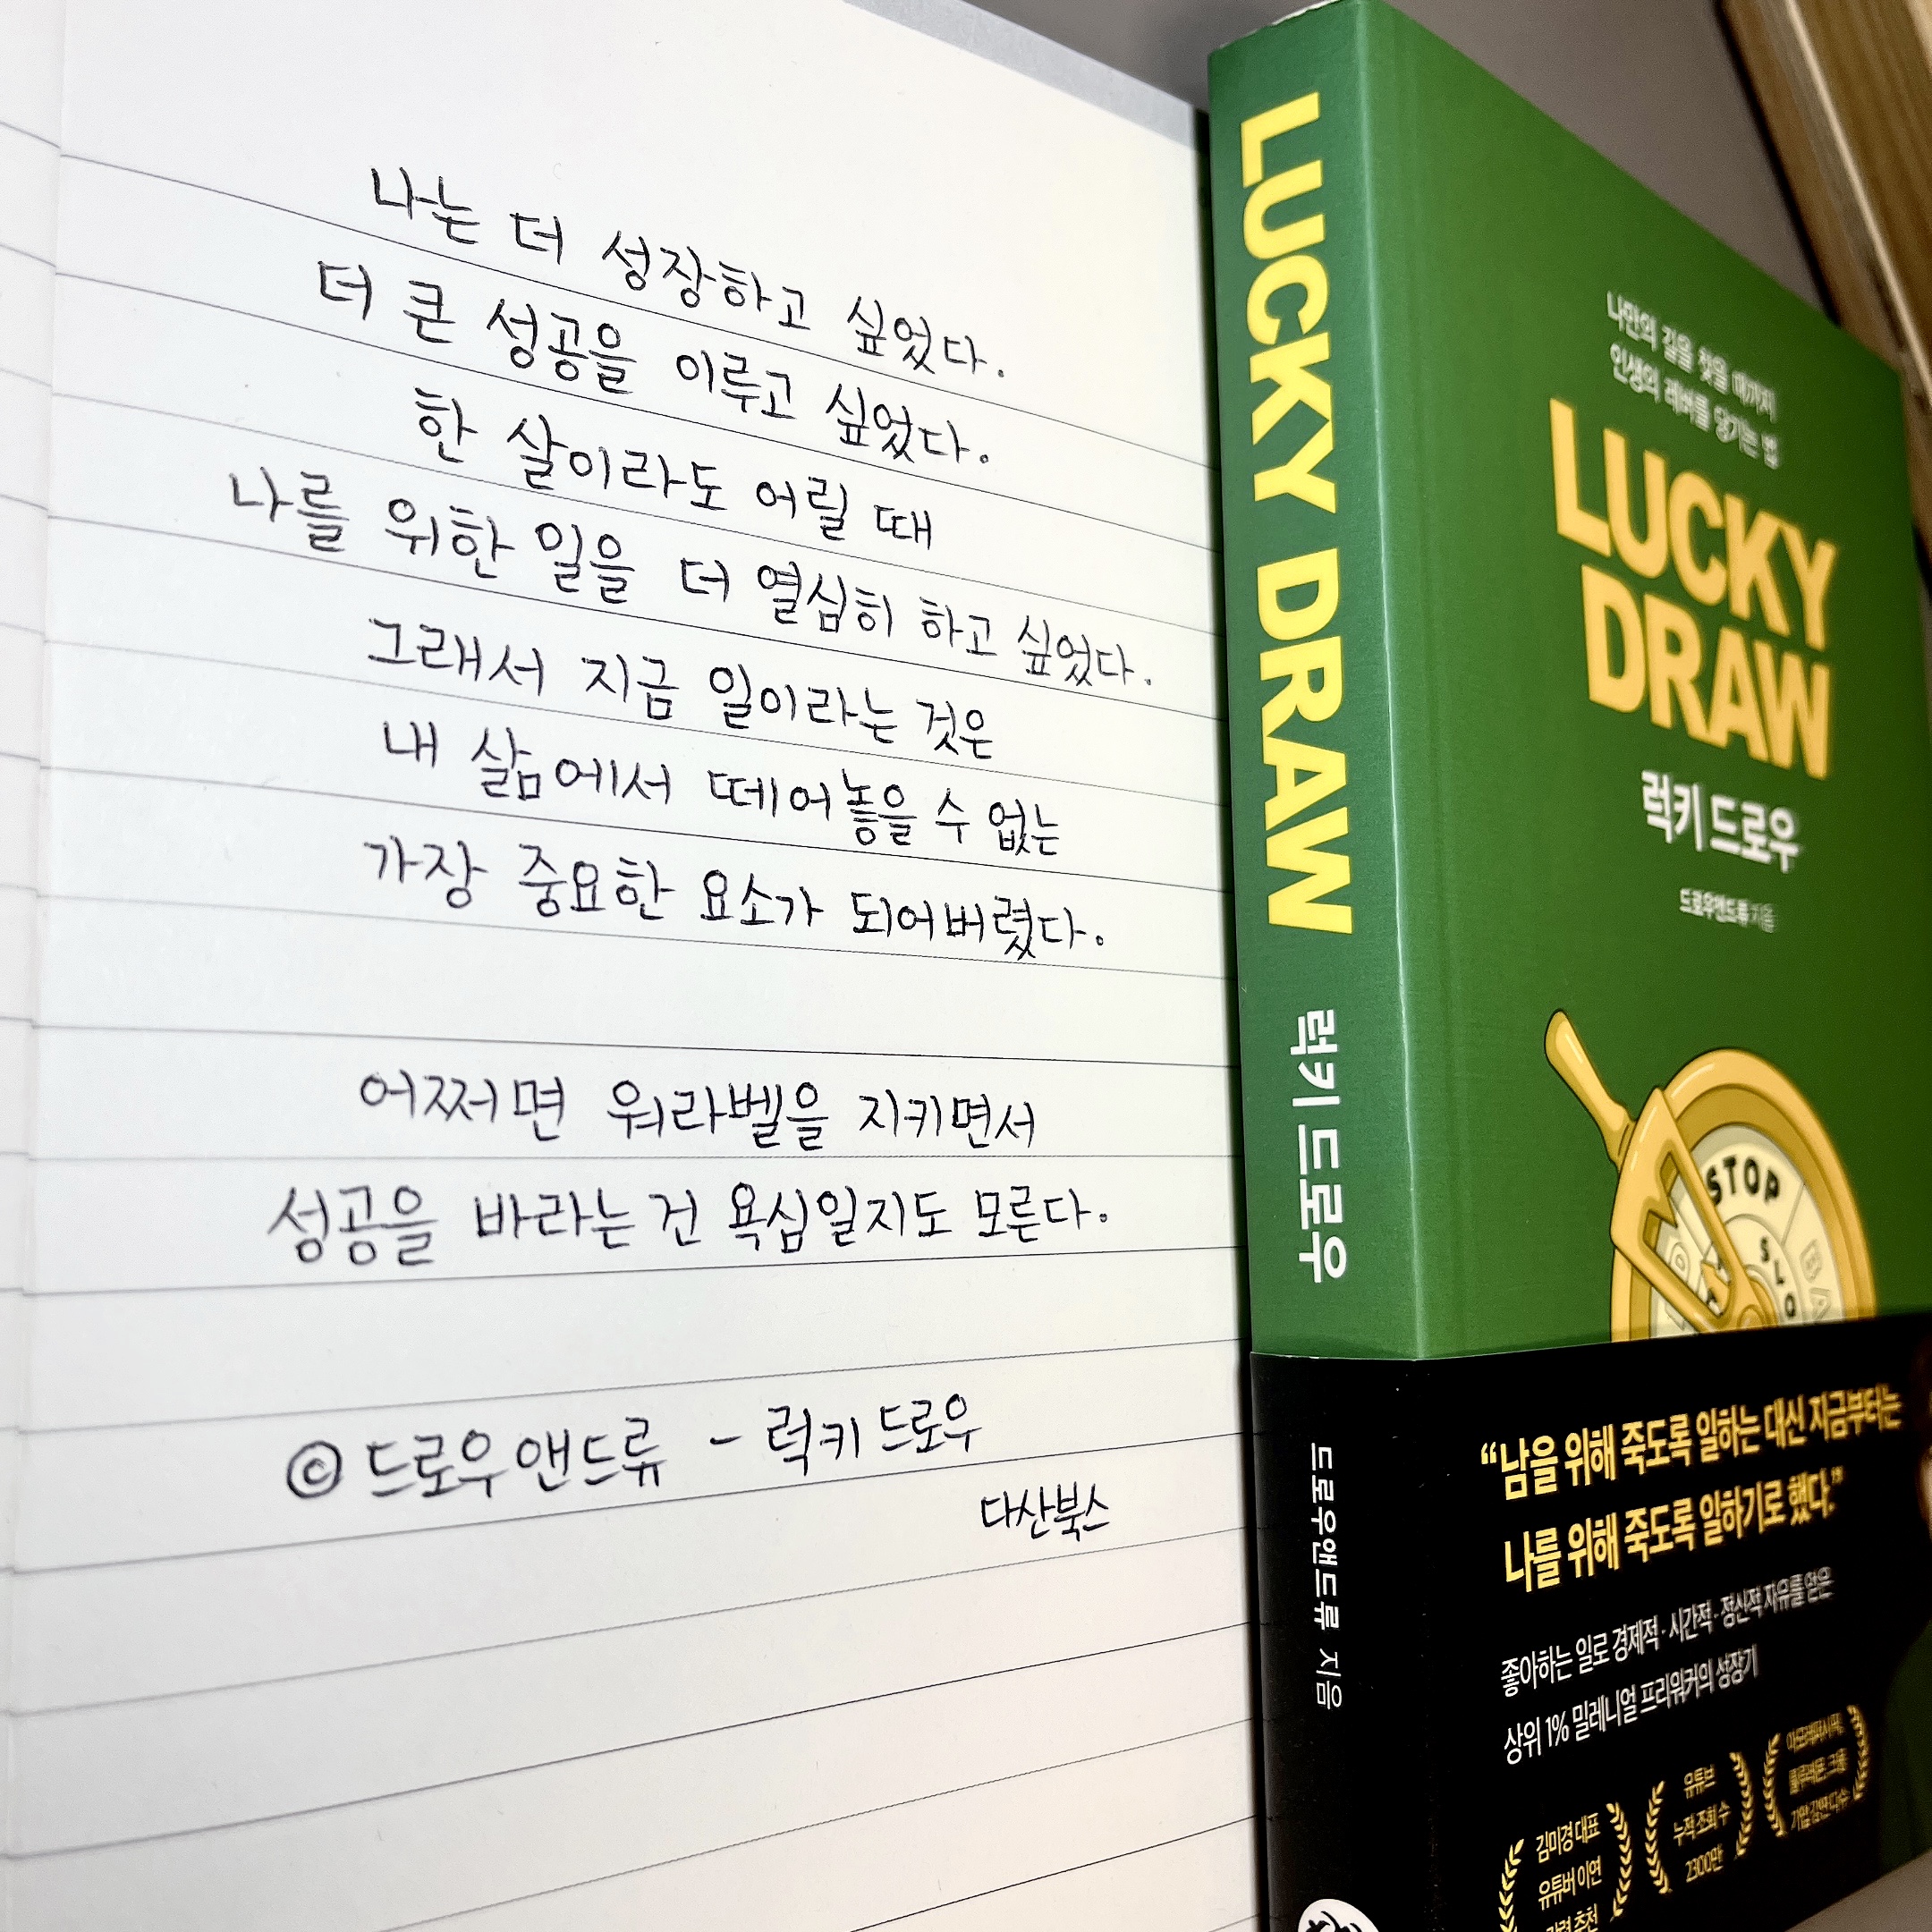 나는 더 성장하고 싶었다.
더 큰 성공을 이루고 싶었다.
한 살이라도 어릴 때
나를 위한 일을 더 열심히 하고 싶었다.
그래서 지금 일이라는 것은
내 삶에서 떼어놓을 수 없는
가장 중요한 요소가 되어버렸다.
어쩌면 워라벨을 지키면서
성공을 바라는 건 욕심일지도 모른다.
© 드로우앤드류 - 럭키 드로우
다산북스
LUCKY DRAW 럭키 드로우
드로우앤드류 지음
나만의 길을 찾을 때까지
인생의 레버를 당기는 법
LUCKY
DRAW
럭키 드로우
드로우앤드류 지음
STOP
SLO
“남을 위해 죽도록 일하는 대신 지금부터는
나를 위해 죽도록 일하기로 했다.”
좋아하는 일로 경제적·시간적·정신적 자유를 얻은
상위 1% 밀레니얼 프리워커의 성장기
김미경 대표
유튜버 이연
추천
유튜브
누적 조회 수
2300만
기업 강연 다수